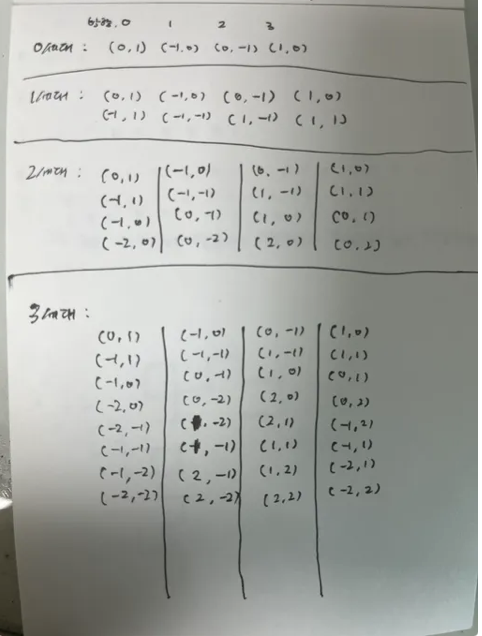 방향. 0 1 2 3
0세대 : (0,1) (-1,0) (0,-1) (1,0)
1세대 : (0,1) (-1,0) (0,-1) (1,0)
(-1,1) (-1,-1) (1,-1) (1,1)
2세대 : (0,1) (-1,0) (0,-1) (1,0)
(-1,1) (-1,-1) (1,-1) (1,1)
(-1,0) (0,-1) (1,0) (0,1)
(-2,0) (0,-2) (2,0) (0,2)
3세대 :
(0,1) (-1,0) (0,-1) (1,0)
(-1,1) (-1,-1) (1,-1) (1,1)
(-1,0) (0,-1) (1,0) (0,1)
(-2,0) (0,-2) (2,0) (0,2)
(-2,-1) ( ,-2) (2,1) (-1,2)
(-1,-1) ( ,-1) (1,1) (-1,1)
(-1,-2) (2,-1) (1,2) (-2,1)
(-2,-2) (2,-2) (2,2) (-2,2)